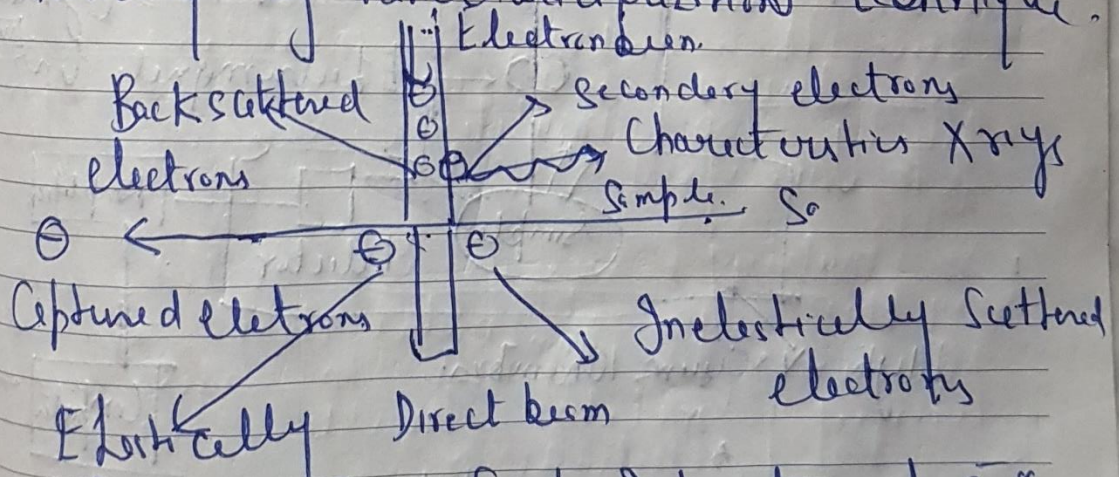 Electron beem.
Back scattered
electrons
Secondary electrons
Charecteristics X rays
Sample. Sa
Captured eletrons
Inelestically Scettered
electrons
Elastically
Direct beam